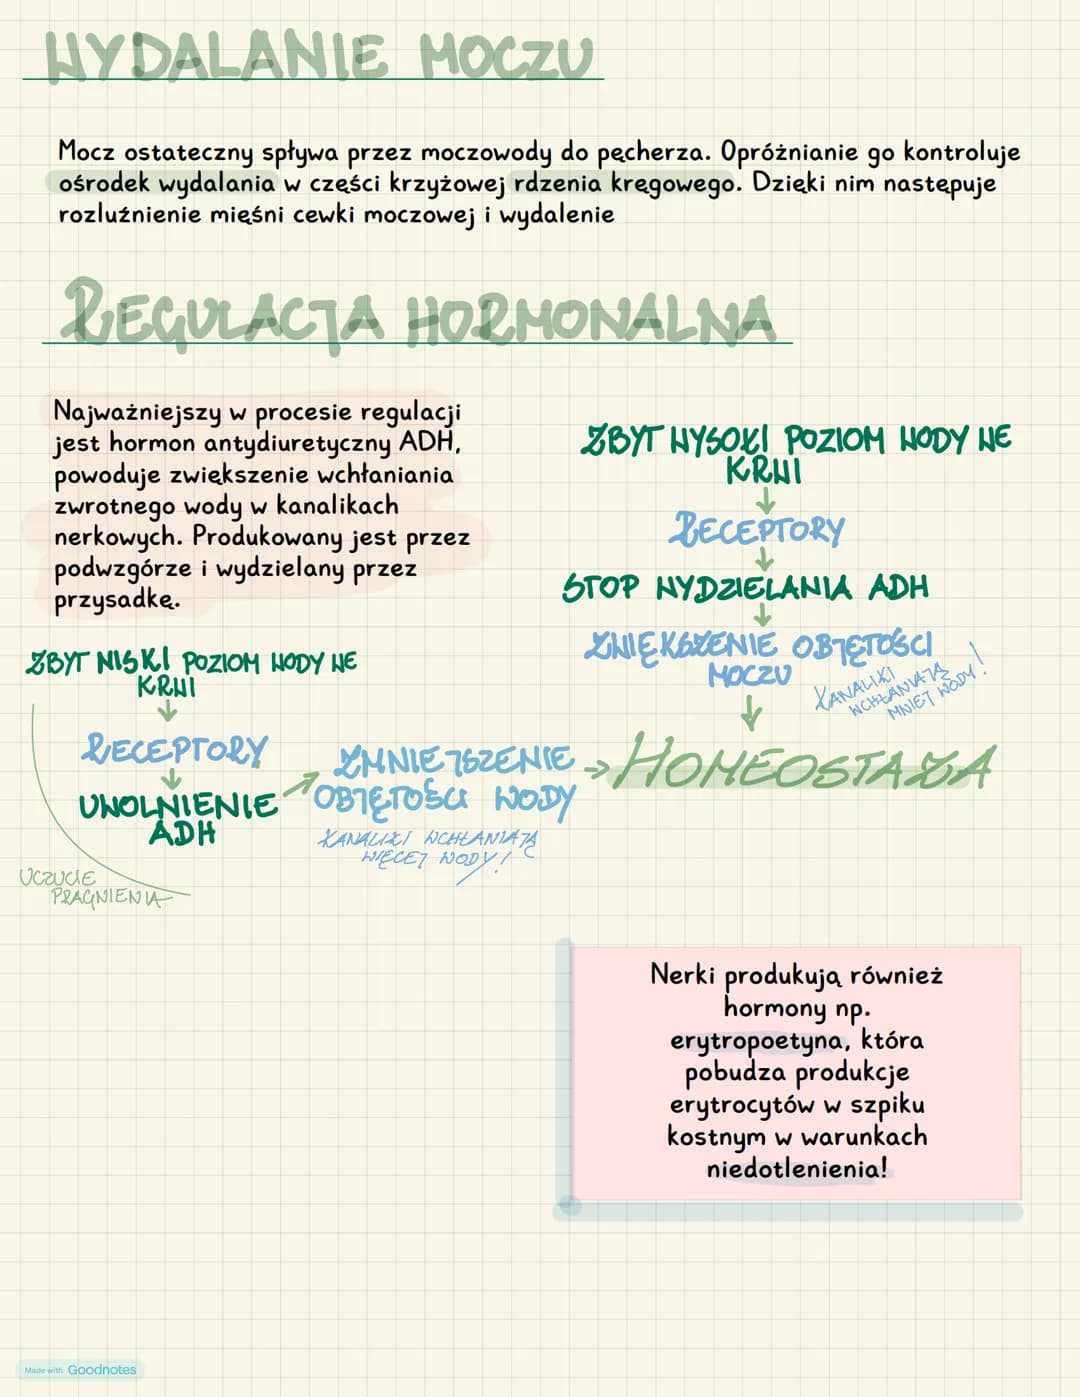 WYDALANIE MOCZU
Mocz ostateczny spływa przez moczowody do pęcherza. Opróżnianie go kontroluje
ośrodek wydalania w części krzyżowej rdzenia kręgowego. Dzięki nim następuje
rozluźnienie mięśni cewki moczowej i wydalenie
REGULACJA HORMONALNA
Najważniejszy w procesie regulacji
jest hormon antydiuretyczny ADH,
powoduje zwiększenie wchłaniania
zwrotnego wody w kanalikach
nerkowych. Produkowany jest przez
podwzgórze i wydzielany przez
przysadkę.
ZBYT NISKI POZIOM WODY WE
KRWI
↓
RECEPTORY
↓
UWOLNIENIE
ADH
UCZUCIE
PRAGNIENIA
ZMNIEJSZENIE
OBJĘTOŚCI WODY
KANALIKI WCHŁANIAJĄ
WIĘCEJ WODY!
ZBYT WYSOKI POZIOM WODY WE
KRWI
↓
RECEPTORY
↓
STOP WYDZIELANIA ADH
↓
ZWIĘKSZENIE OBJĘTOŚCI
MOCZU
KANALIKI
WCHŁANIAJĄ
MNIEJ WODY!
↓
→ HOMEOSTAZA
Nerki produkują również
hormony np.
erytropoetyna, która
pobudza produkcje
erytrocytów w szpiku
kostnym w warunkach
niedotlenienia!
Made with Goodnotes